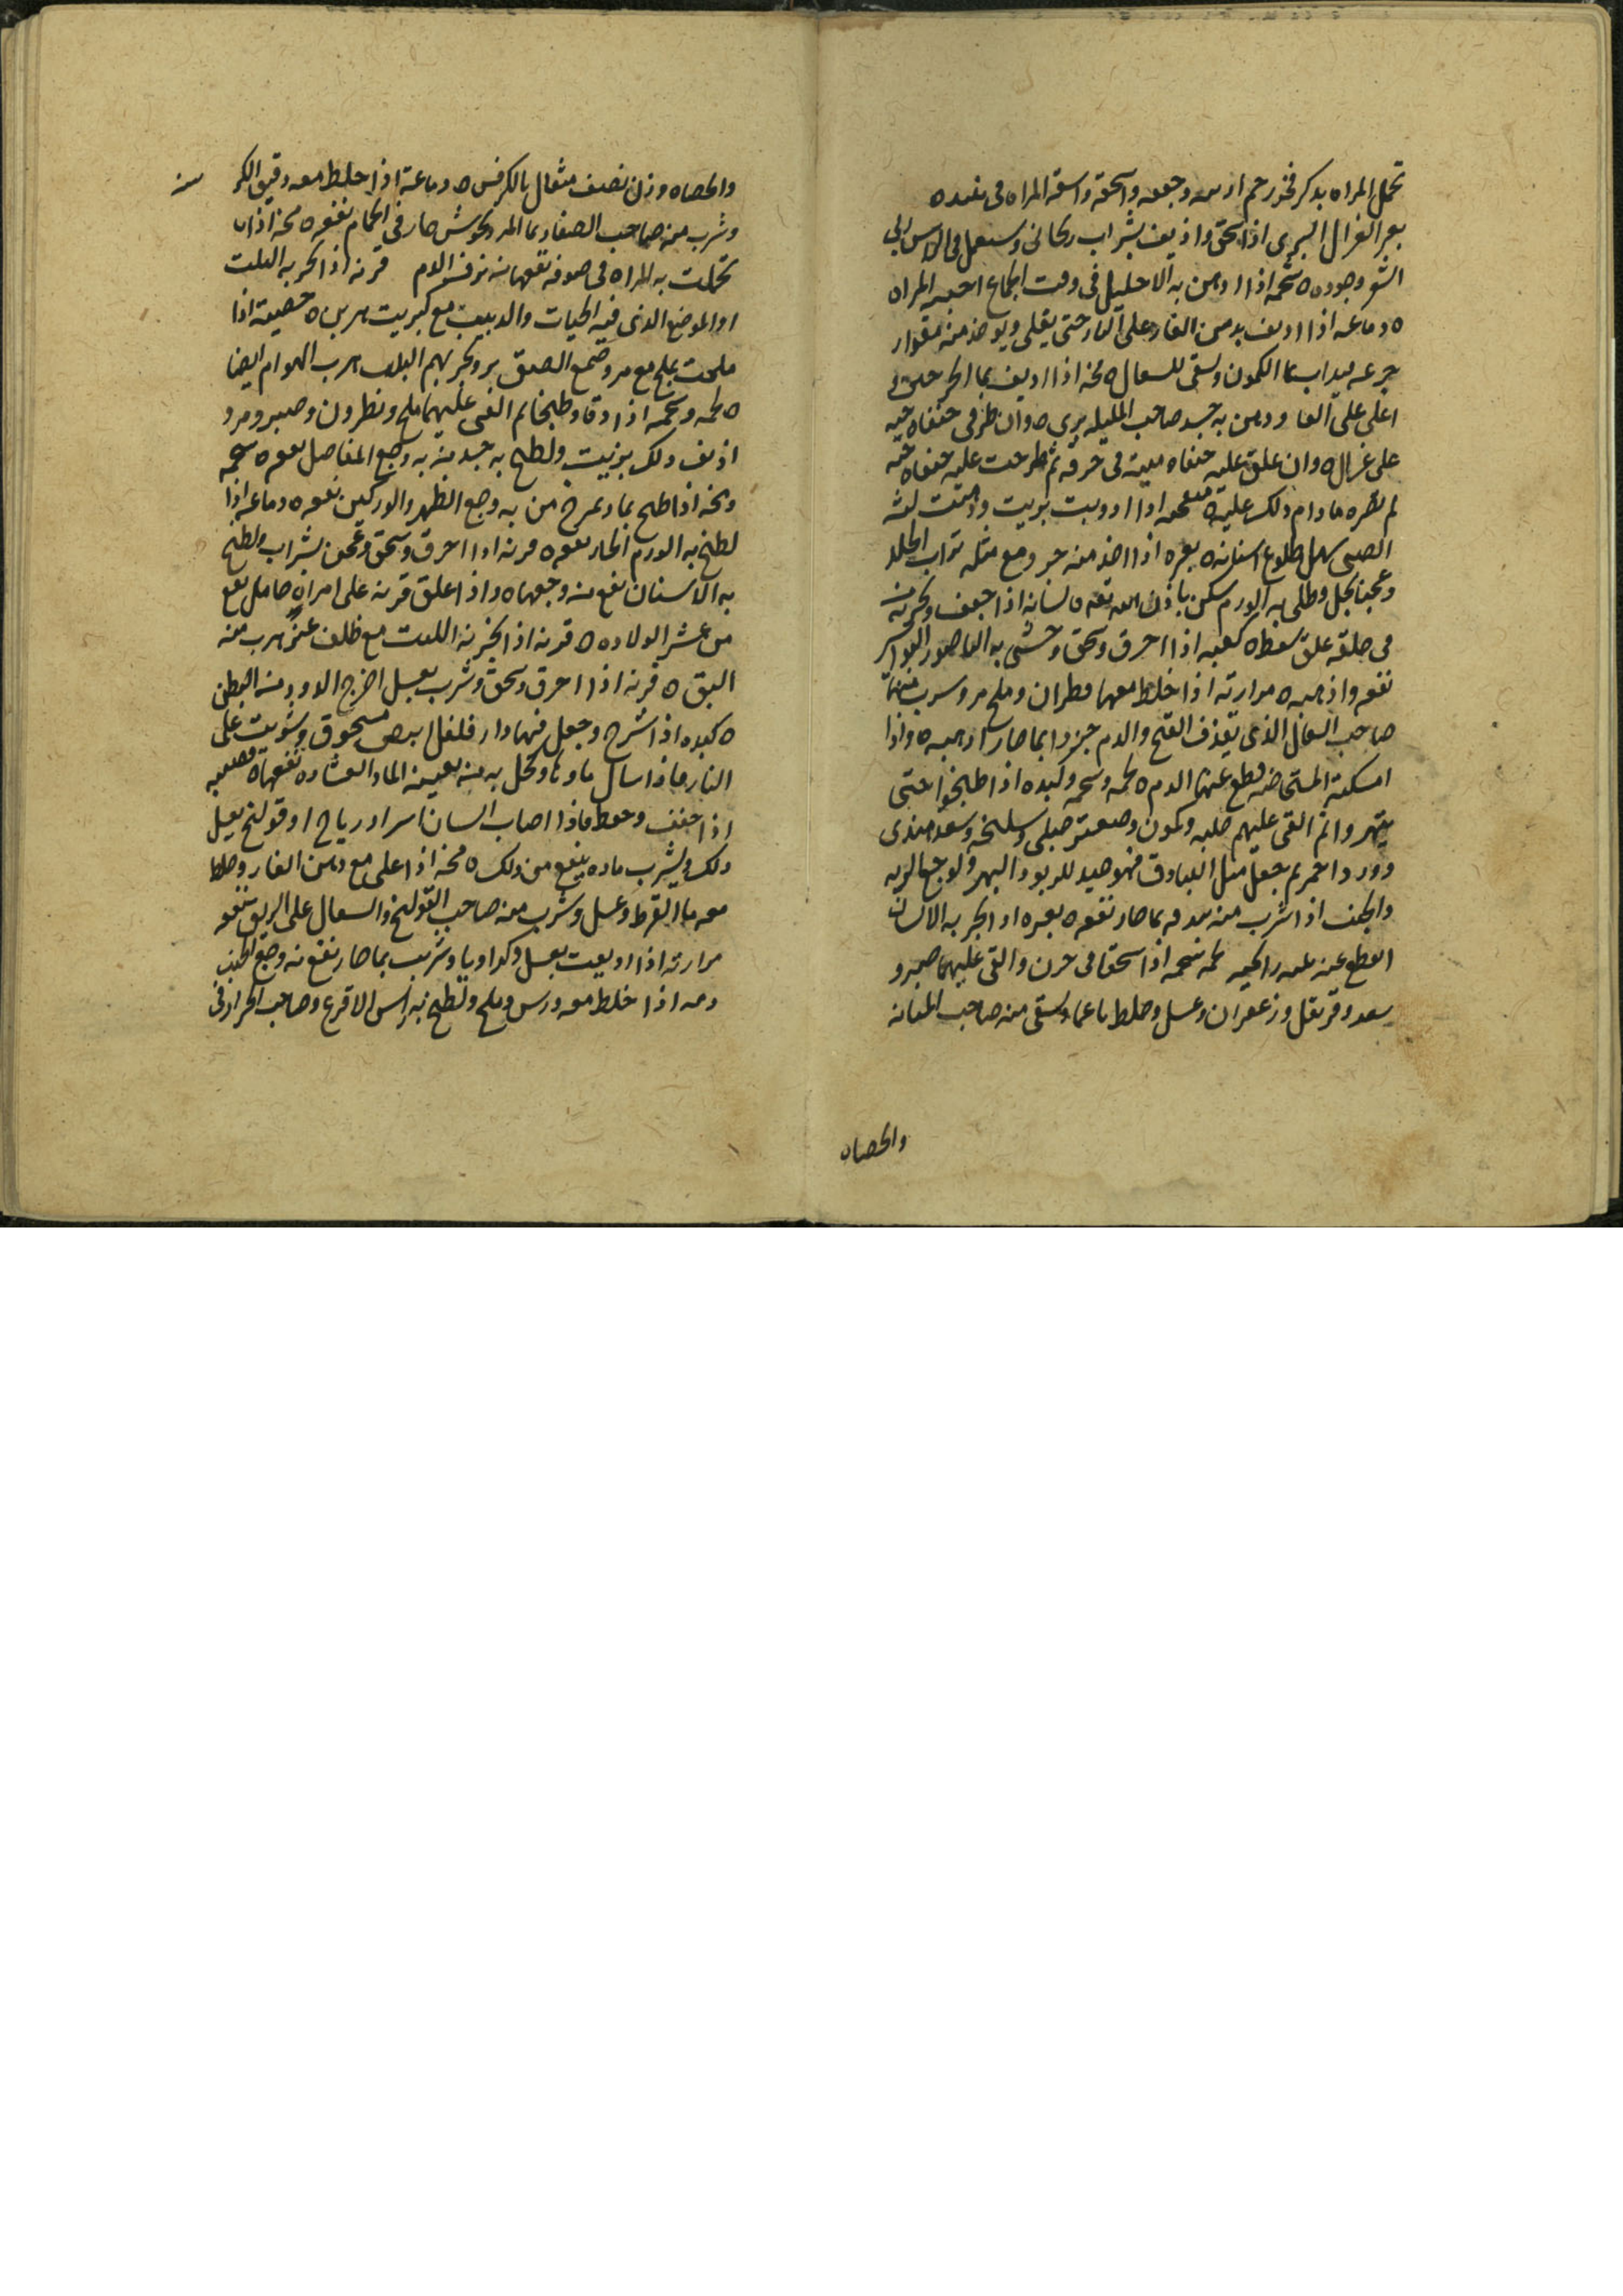 تحمل المراه بدكر فخذ رحم وجعه واسحقه واسقه المراه فى
بعر الغزال البرى اذا سحق واذيف بشراب ريحانى وستعمل فى الراس ربى
الشعر وجوده ه شحمه اذا ادهن به الاحليل فى وقت الجماع احبته المراه
ه دماغه اذا اديف بدهن الغار على النار حتى يغلى ويوخذ منه مقدار
جرعه بما الكمون ويسقى للسعال ه مخه اذا اديف بما الجرجير
اغلى على ودهن به جسد صاحب المليله برى ه وان ظفر فى حنفاه حيه
على غزال ه وان علق عليه حنفاه ميته فى خرقه ثم طرحت عليه حنفاه حيه
لم تضره ما دام ذلك عليه ه اذا بزيت لثه
الصبى سهل طلوع اسنانه ه بعره اذا اخذ منه جزو مع مثله تراب الخلد
وعجنا بخل وطلى به الورم سكن باذن الله ه لسانه اذا جفف وبخر به من
فى حلقه علق سقط ه كعبه اذا احرق وسحق وحشى به الناصور البواسير
نفعه واذهبه ه مرارته اذا خلط معها قطران وملح مر وشرب منها
صاحب السعال الذى يقذف القيح والدم جزوا بما حار اذهبه ه واذا
امسكته المستحاضه قطع عنها الدم ه لحمه وشحمه وكبده اذا طبخوا حتى
يتهروا ثم القى عليهم حلبه وكمون وصعتر جبلى وسليخه وسعد هندى
وورد احمر ثم جعل مثل البنادق فهو جيد للربو والبهر ولوجع الريه
والجنب اذا شرب منه بندقه بما حار نفعه ه بعره اذا بخر به الانسان
انقطع عنه لحمه شحمه اذا سحقا فى جرن والقى عليهما صبر و
سعد وقرنفل وزعفران وعسل وخلط ناعما وسقى منه صاحب المثانه
والحصاه
والحصاه وزن نصف مثقال بالكرفس ه دماغه اذا خلط معه دقيق
وشرب منه صاحب الصفار بما المردكوش حار فى الحمام نفعه ه مخه اذا
تحملت به المراه فى صوفه نفعها من نزف الدم قرنه اذا بخر به البيت
او الموضع الذى فيه الحيات والدبيب مع كبريت هربن ه خصيته اذا
ملحت بملح مع مر وصمغ وبخر بهم البيت هرب الهوام ايضا
ه لحمه وشحمه اذا دقا وطبخا ثم القى عليهما ملح ونطرون وصبر ومر و
اذيف ذلك بزيت ولطخ به جسد من به وجع المفاصل نفعه ه شحمه
ومخه اذا طبخ بما وتمرخ من به وجع الظهر والوركين نفعه ه دماغه اذا
لطخ به الورم الحار نفعه ه قرنه اذا احرق وسحق وعجن بشراب ولطخ
به الاسنان نفع من وجعها ه واذا علق قرنه على امراه حامل نفع
من عسر الولاده ه قرنه اذا بخر به البيت مع ظلف عنز هرب منه
البق ه قرنه اذا احرق وسحق وشرب بعسل اخرج الدود من البطن
ه كبده اذا شرح وجعل فيها دار فلفل ابيض مسحوق وشويت على
النار فاذا سال ماوها وكحل به من بعينه الما والغشاوه نفعها ه قضيبه
اذا جفف وحفظ فاذا اصاب انسان اسر او رياح او قولنج
ذلك ويشرب ماوه ينفع من ذلك ه مخه اذا اغلى مع دهن الغار وخلط
معه ما القرط وعسل وشرب منه صاحب القولنج والسعال على الريق نفعه
مرارته اذا اديفت بعسل وكراويا وشربت بما حار نفع من وجع الجنب
دمه اذا خلط معه ورس وملح ولطخ به راس الاقرع وصاحب الحزاز فى